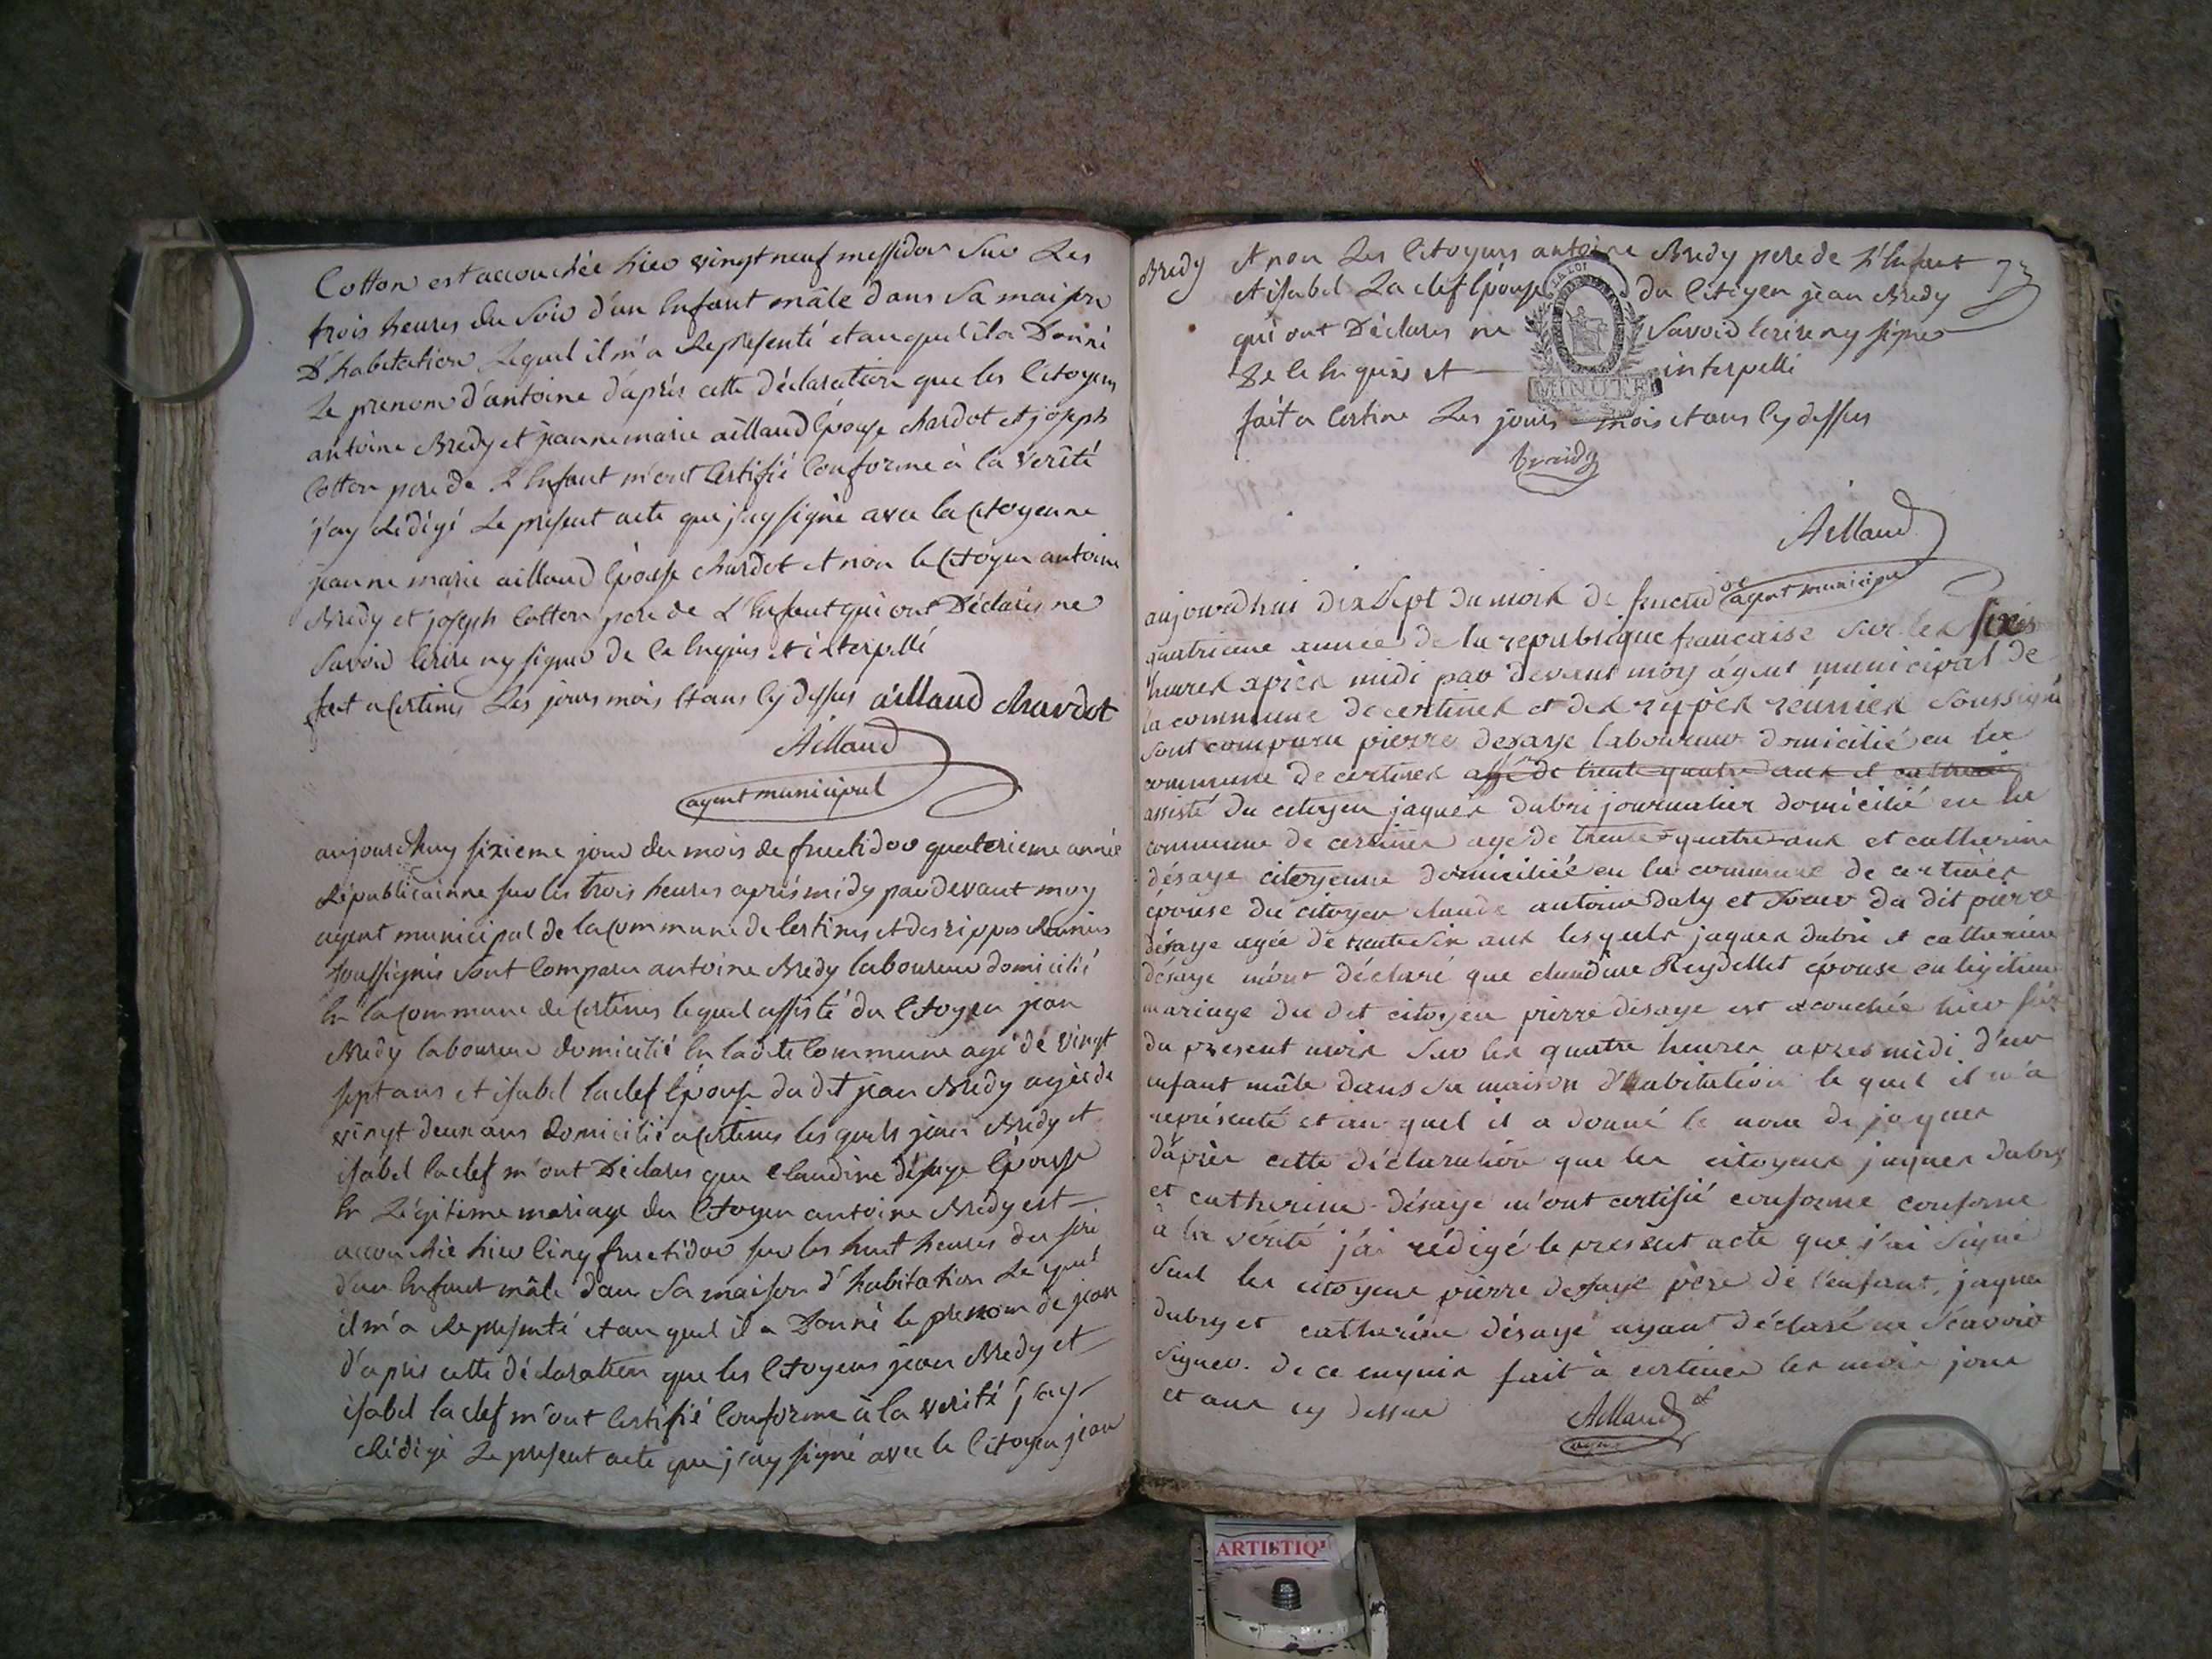 Cotton est accouchée hier vingt neuf messidor sur Les
trois heures du soir d'un Enfant mâle dans sa maison
D'habitation Lequel il m'a Représenté et auquel il a Donné
Le prenom d'antoine d'après cette déclaration que les Citoyens
antoine Bredy et jeanne marie aillaud Epouse chardot et joseph
Cotton pere de L'Enfant m'ont Certifié Conforme à la Vérité
j'ay Rédigé Le présent acte que j'ay signé avec la Citoyenne
jeanne marie aillaud Epouse chardot et non le Citoyen antoine
Bredy et joseph Cotton pere de L'Enfant qui ont Déclarés ne
Savoir Ecrire ny signer de Ce Enquis et interpellé
fait a Certines Les jours mois Et ans Cy dessus aillaud chardot
Aillaud
agent municipal
aujourdhuy sixieme jour du mois de fructidor quatrieme année
Républicainne sur les trois heures après midy pardevant moy
agent municipal de la Commune de Certines et des rippes Réunies
soussignés sont Comparu antoine Bredy laboureur domicilié
En la Commune de Certines lequel assisté du Citoyen jean
Bredy laboureur domicilié En la dite Commune agé de vingt
sept ans et isabel laclef Epouse du dit jean Bredy agée de
vingt deux ans domicilié a Certines les quels jean Bredy et
isabel laclef m'ont Déclarés que Claudine désaye Epouse
En Légitime mariage du Citoyen antoine Bredy est
accouchée hier Cinq fructidor sur les huit heures du soir
d'un Enfant mâle dans Sa maison d'habitation Le quel
il m'a Représenté et au quel il a Donné le prenom de jean
d'après cette déclaration que les Citoyens jean Bredy et
isabel laclef m'ont Certifié Conforme à la verité j'ay
Rédigé Le present acte que j'ay signé avec le Citoyen jean
Bredy et non Les Citoyens antoine Bredy pere de L'Enfant 73
et isabel La clef Epouse du Citoyen jean Bredy
qui ont Déclarés ne Savoir Ecrire ny signer
De Ce Enquis et interpellé
LA LOI
MINUTE
fait a Certine Les jours mois et ans Cy dessus
breidy
Aillaud
agent municipal
aujourdhui dix Sept du mois de fructidor
quatrieme année de la republique francaise sur les six
heures apres midi par devant moy agent municipal de
la commune de certines et des rippes réunies soussigné
sont comparu pierre desaye laboureur domicilié en la
commune de certines agé de trente quatre ans et catherine
assisté du citoyen jaques dubri journalier domicilié en la
commune de certines agé de trente quatre ans et catherine
désaye citoyenne domiciliée en la commune de certines
épouse du citoyen claude antoine Daly et soeur du dit pierre
désaye agée de trente six ans les quels jaques dubri et catherine
désaye m'ont déclaré que claudine Reydellet épouse en légitime
mariage du dit citoyen pierre désaye est acouchée hier
du present mois sur les quatre heures apres midi d'un
enfant mâle dans sa maison d'habitation le quel il m'a
représenté et au quel il a donné le nom de jaques
d'après cette déclaration que les citoyens jaques dubry
et catherine désaye m'ont certifié conforme conforme
à la vérité j'ai rédigé le present acte que j'ai signé
seul les citoyens pierre desaye père de l'enfant, jaques
dubry et catherine désaye ayant déclaré ne scavoir
signer. de ce enquis fait à certines les mois jour
et ans cy dessus
Aillaud
agent
ARTISTIQ